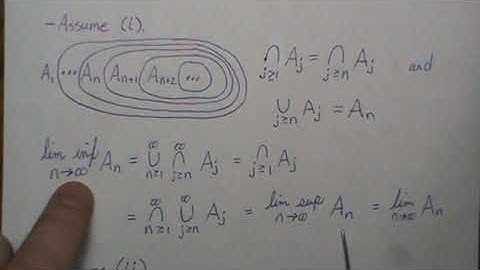 - Assume (i).
A₁ ... Aₙ Aₙ₊₁ Aₙ₊₂ ...
⋂_{j≥1} A_j = ⋂_{j≥n} A_j and
⋃_{j≥n} A_j = Aₙ
lim inf_{n→∞} Aₙ = ⋃_{n≥1}^{∞} ⋂_{j≥n}^{∞} A_j = ⋂_{j≥1} A_j
= ⋂_{n≥1}^{∞} ⋃_{j≥n}^{∞} A_j = lim sup_{n→∞} Aₙ = lim_{n→∞} Aₙ